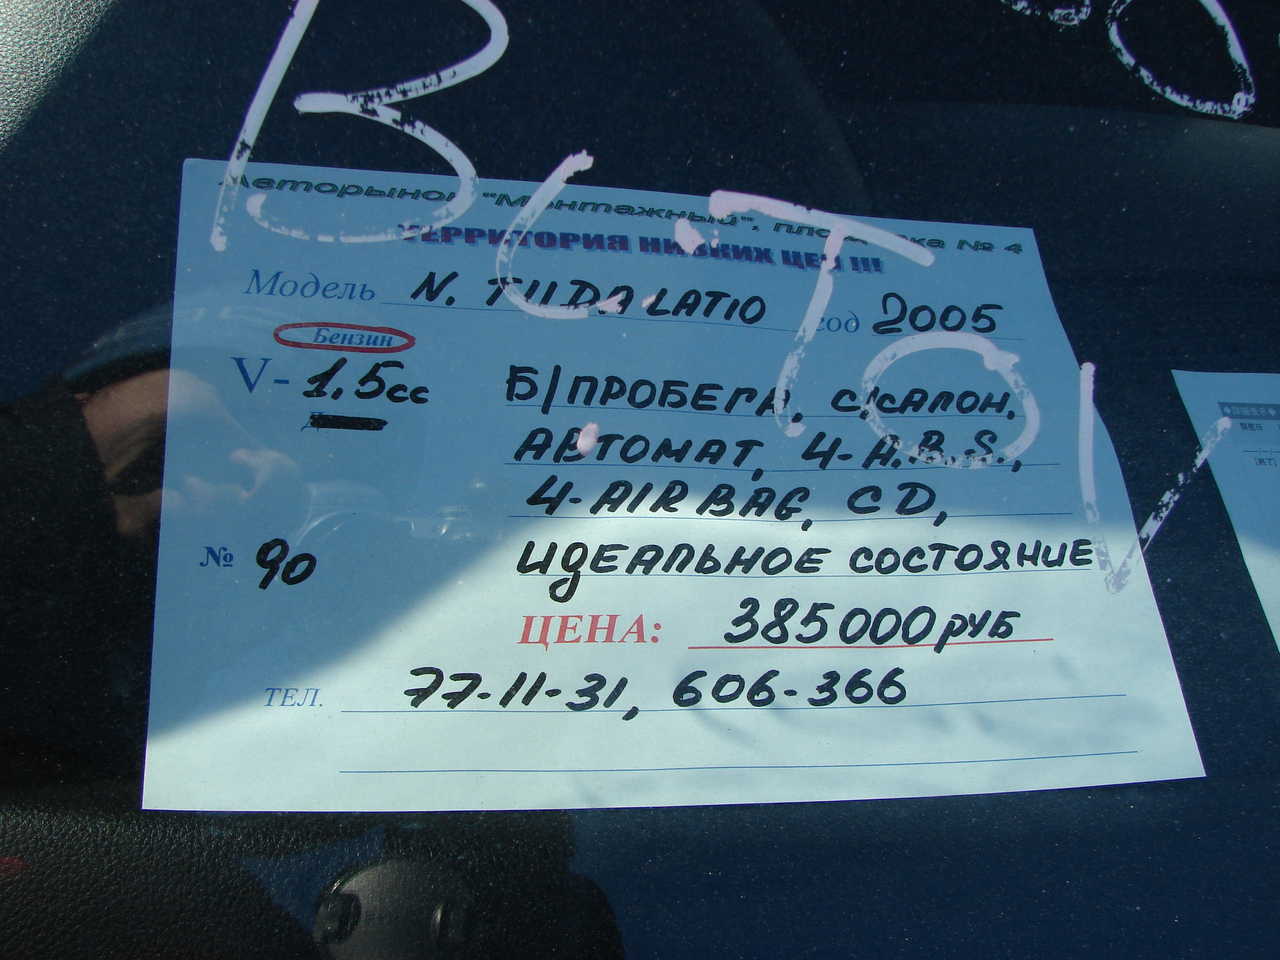 Авторынок "Монтажный", площадка № 4
ТЕРРИТОРИЯ НИЗКИХ ЦЕН !!!
Модель N. TIIDA LATIO год 2005
Бензин
V- 1,5cc Б/ПРОБЕГА, С/САЛОН,
АВТОМАТ, 4-A.B.S.,
4-AIRBAG, CD,
№ 90 ИДЕАЛЬНОЕ СОСТОЯНИЕ
ЦЕНА: 385000 РУБ
ТЕЛ. 77-11-31, 606-366